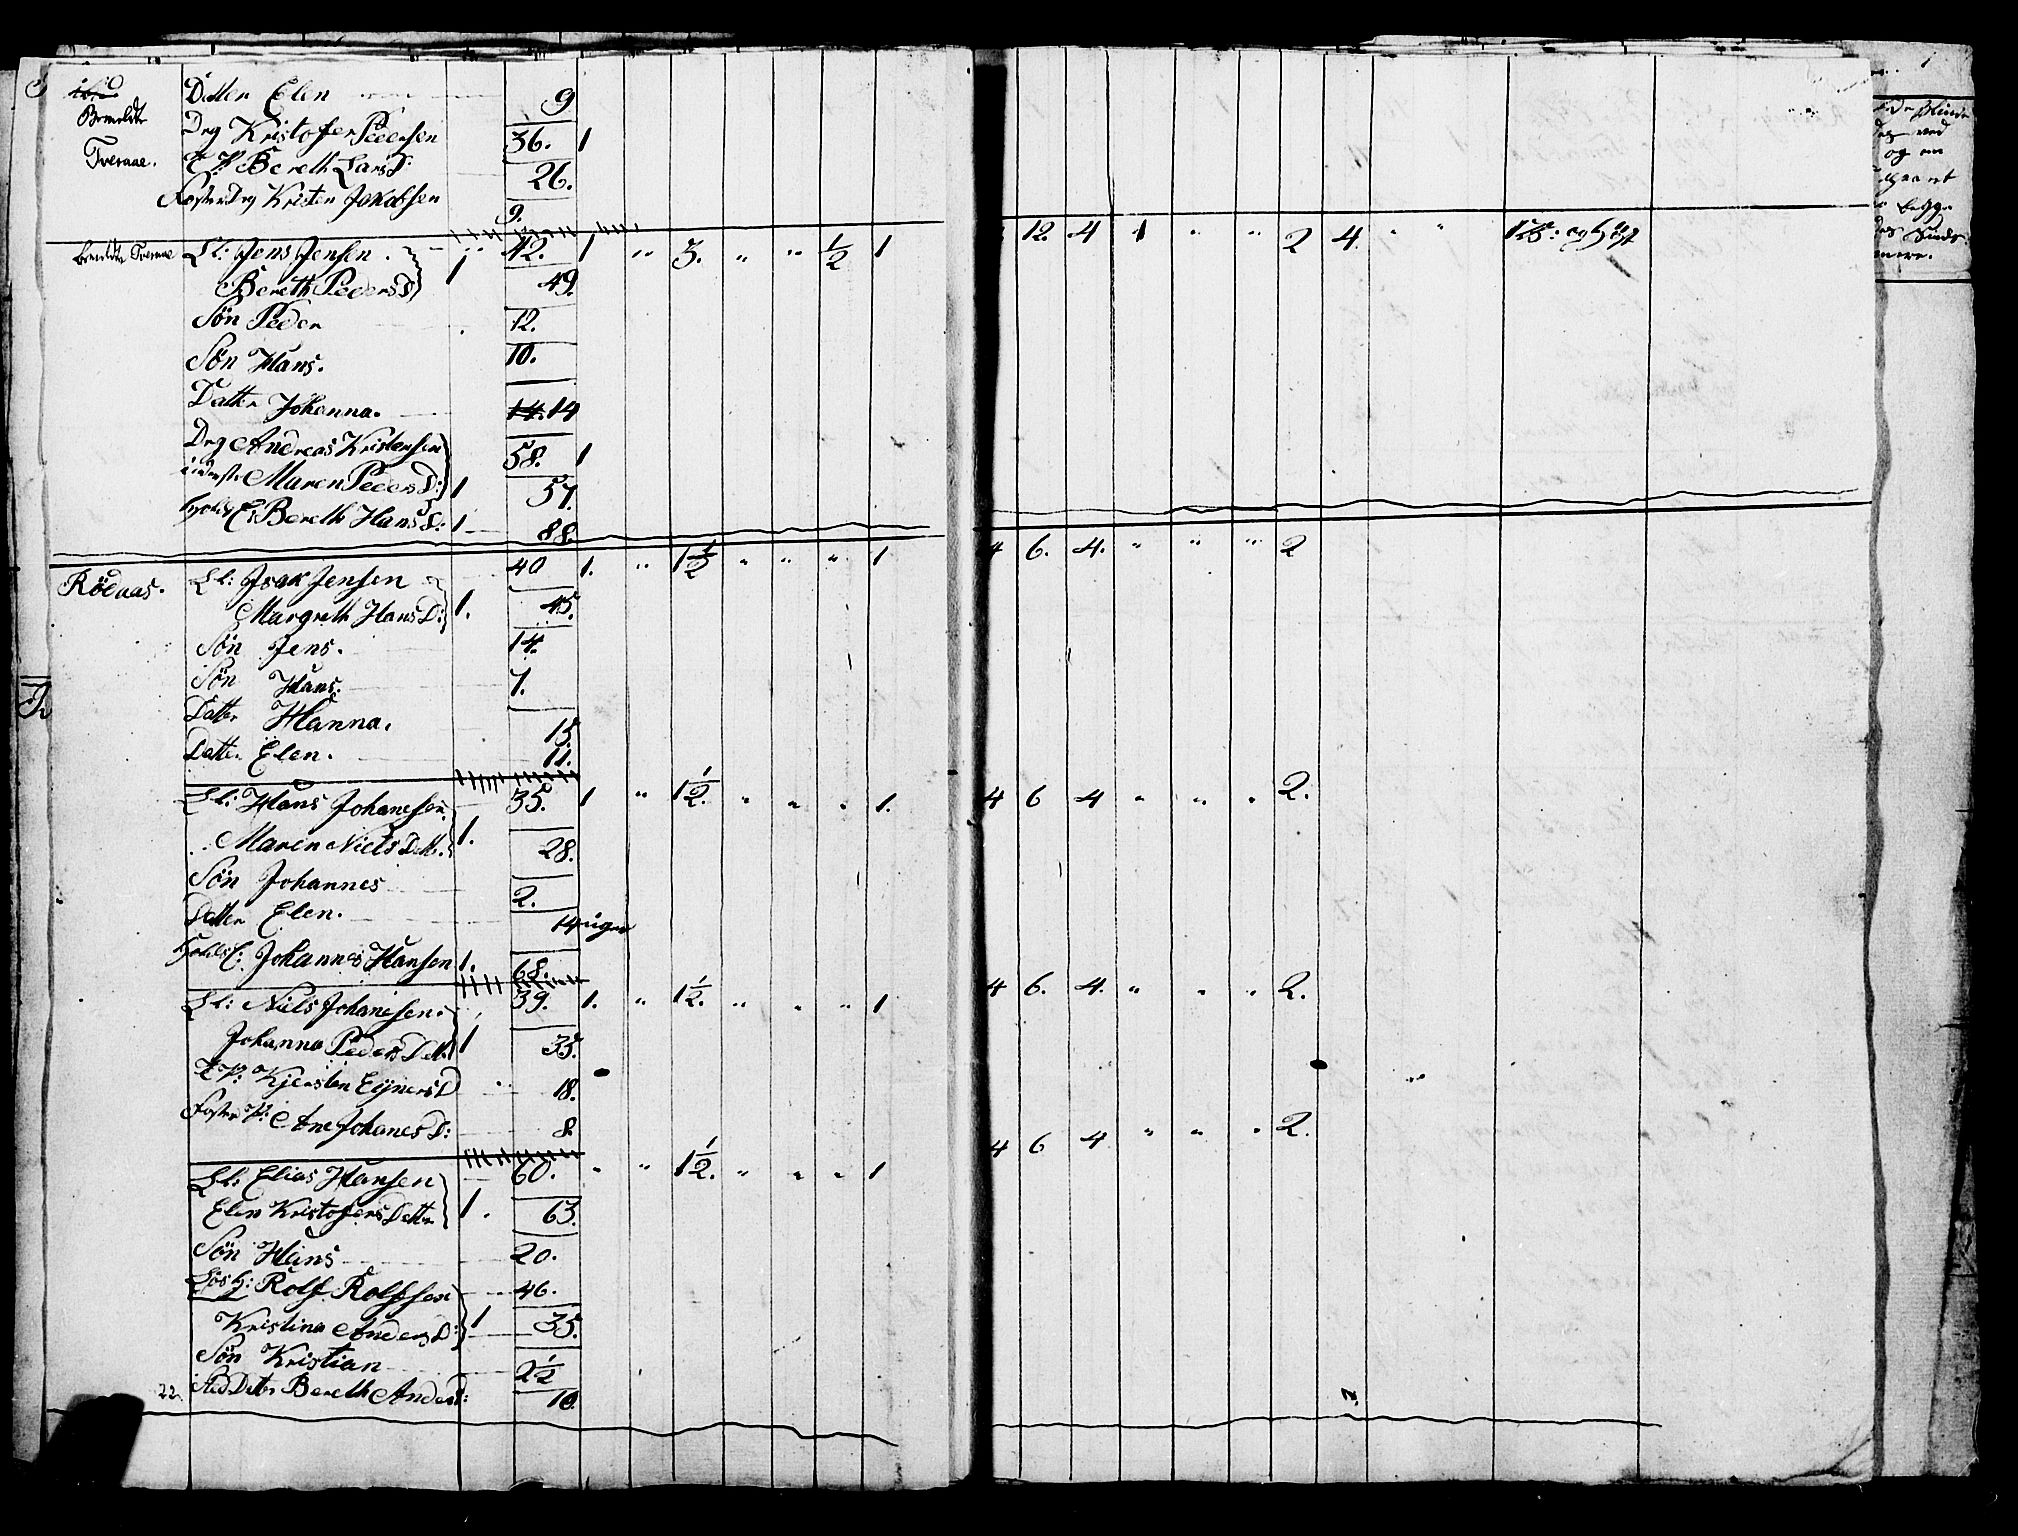 Datter Elen 9
Tveraae.
Drg Kristofer Pedersen 36. 1
T. P. Bereth Lars D: 26.
FosterDrg Kristen Jakobsen 9.
Tveraae Ll: Jens Jensen . 42. 1 " 3. " " ½ 1 12. 4 1 " " 2 4. " "
Bereth Peders D 1 49.
Søn Peder 12.
Søn Hans. 10.
Datter Johanna. 14. 14
Drg Andreas Kristensen 58. 1
inderste Maren Peders D: 1 57.
E: Bereth Hans D: 1 88.
Rödaas. Ll: Isak Jensen 40 1. " 1½ " " " 1. 4 6. 4. " " " 2
Margreth Hans D: 1. 45.
Søn Jens. 14.
Søn Hans. 7.
Datter Hanna. 15
Datter Elen. 11.
Ll: Hans Johanesen 35. 1 " 1½. " " " 1. 4 6 4 " " " 2.
Maren Niels Datt. 1. 28.
Søn Johannes 2.
Datter Elen. 14 uger
Johannes Hansen 1. 68.
Ll: Niels Johanesen. 39. 1. " 1½. " " " 1 4 6. 4. " " " 2.
Johanna Peders Datt 1 35.
T. P: Kjersten Ejners D 18.
Foster P: Ane Johanes D: 8
Ll: Elias Hansen 60. " " 1½. " " " 1 4 6 4 " " " 2.
Elen Kristofers Datter 1. 63.
Søn Hans 20.
Løsg: Rolf Rolfsen 46.
Kristina Anders D: 1 35.
Søn Kristian 2½
22. Sted Dattr Bereth Anders: 10.